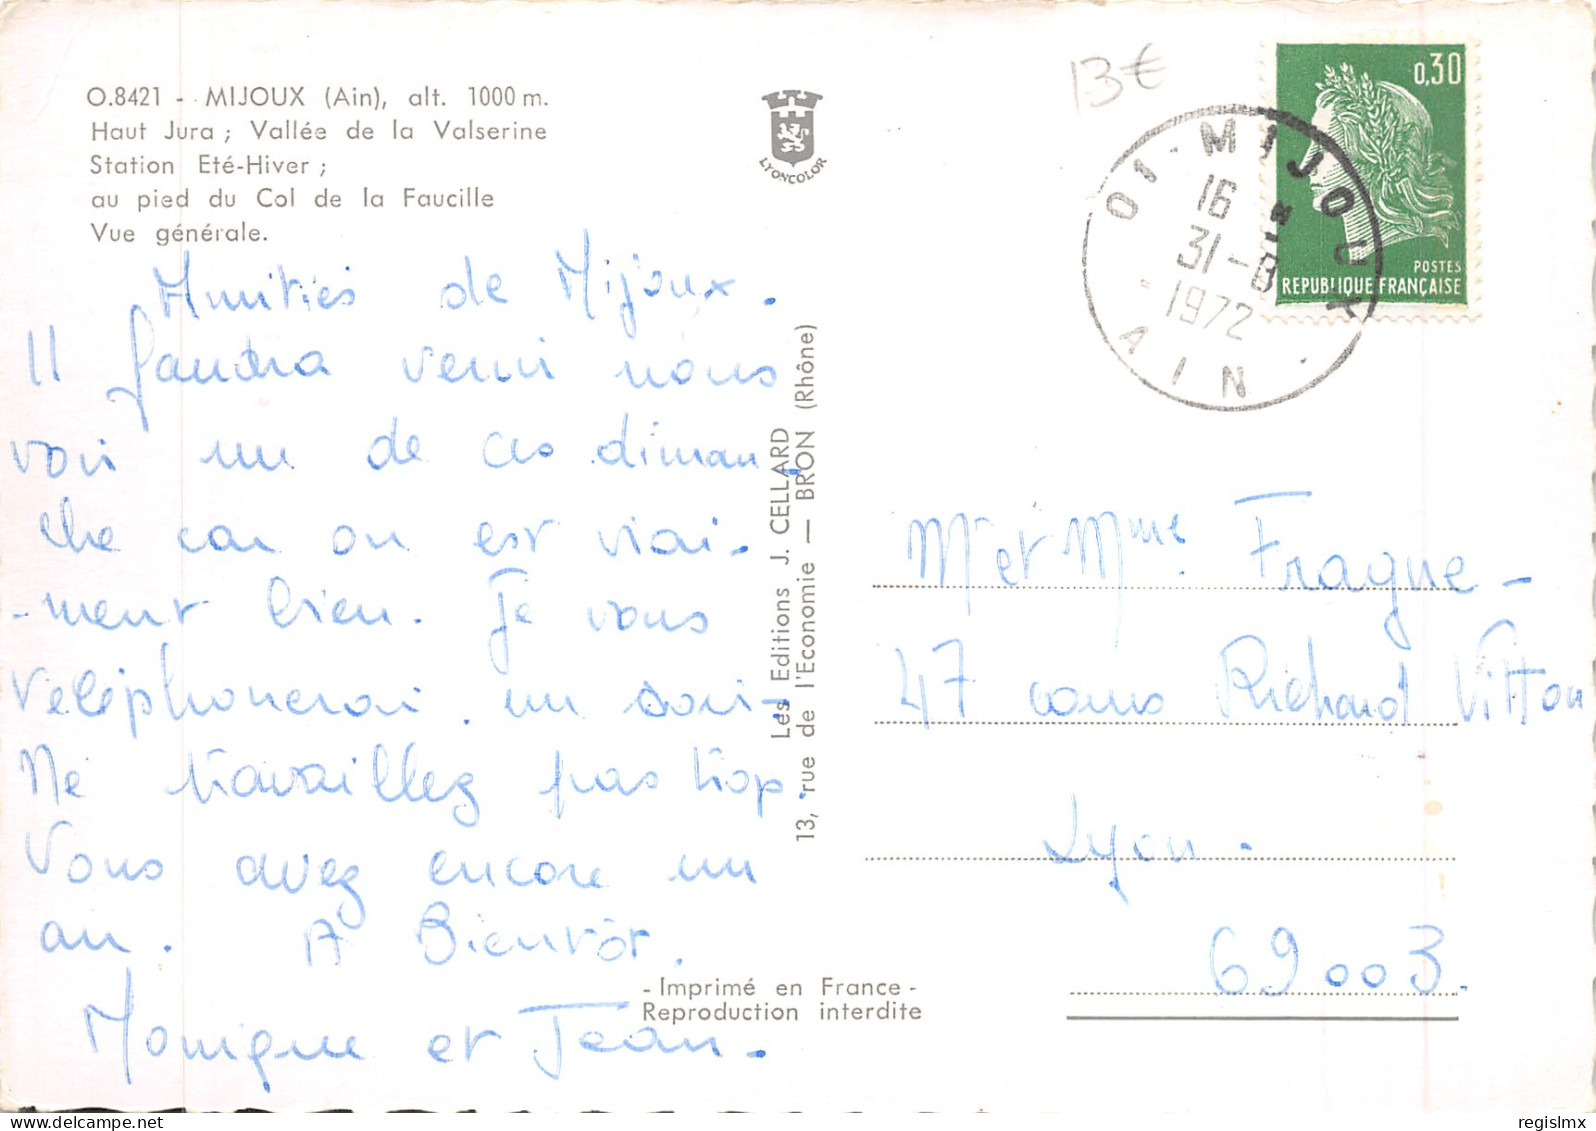 O.8421 - MIJOUX (Ain), alt. 1000 m.
Haut Jura ; Vallée de la Valserine
Station Eté-Hiver ;
au pied du Col de la Faucille
Vue générale.
Amitiés de Mijoux.
Il faudra venir nous
voir un de ces diman-
che car on est vrai-
-ment bien. Je vous
téléphonerai un soir.
Ne travaillez pas trop.
Vous avez encore un
an. A Bientôt.
Monique et Jean.
LYONCOLOR
Les Editions J. CELLARD
13, rue de l'Economie — BRON (Rhône)
- Imprimé en France -
Reproduction interdite
13€
01 - MIJOUX
16 H
31-8
1972
AIN
0,30
POSTES
REPUBLIQUE FRANÇAISE
Mr et Mme. Fragne -
47 cours Richard Vitton
Lyon.
69003.
regislmx